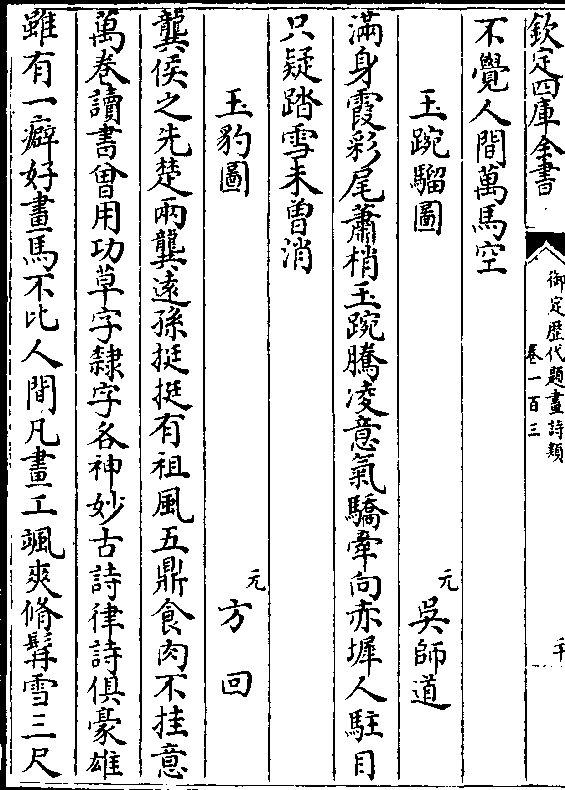 欽定四庫全書
御定歷代題畫詩類
卷一百三
二十
不覺人間萬馬空
玉踠騮圖
元
吳師道
滿身霞彩尾蕭梢玉踠騰凌意氣驕牽向赤墀人駐目
只疑踏雪未曽消
玉豹圖
元
方回
龔侯之先楚兩龔遠孫挺挺有祖風五鼎食肉不挂意
萬卷讀書曾用功草字隸字各神妙古詩律詩俱豪雄
雖有一癖好畫馬不比人間凡畫工颯爽脩髯雪三尺